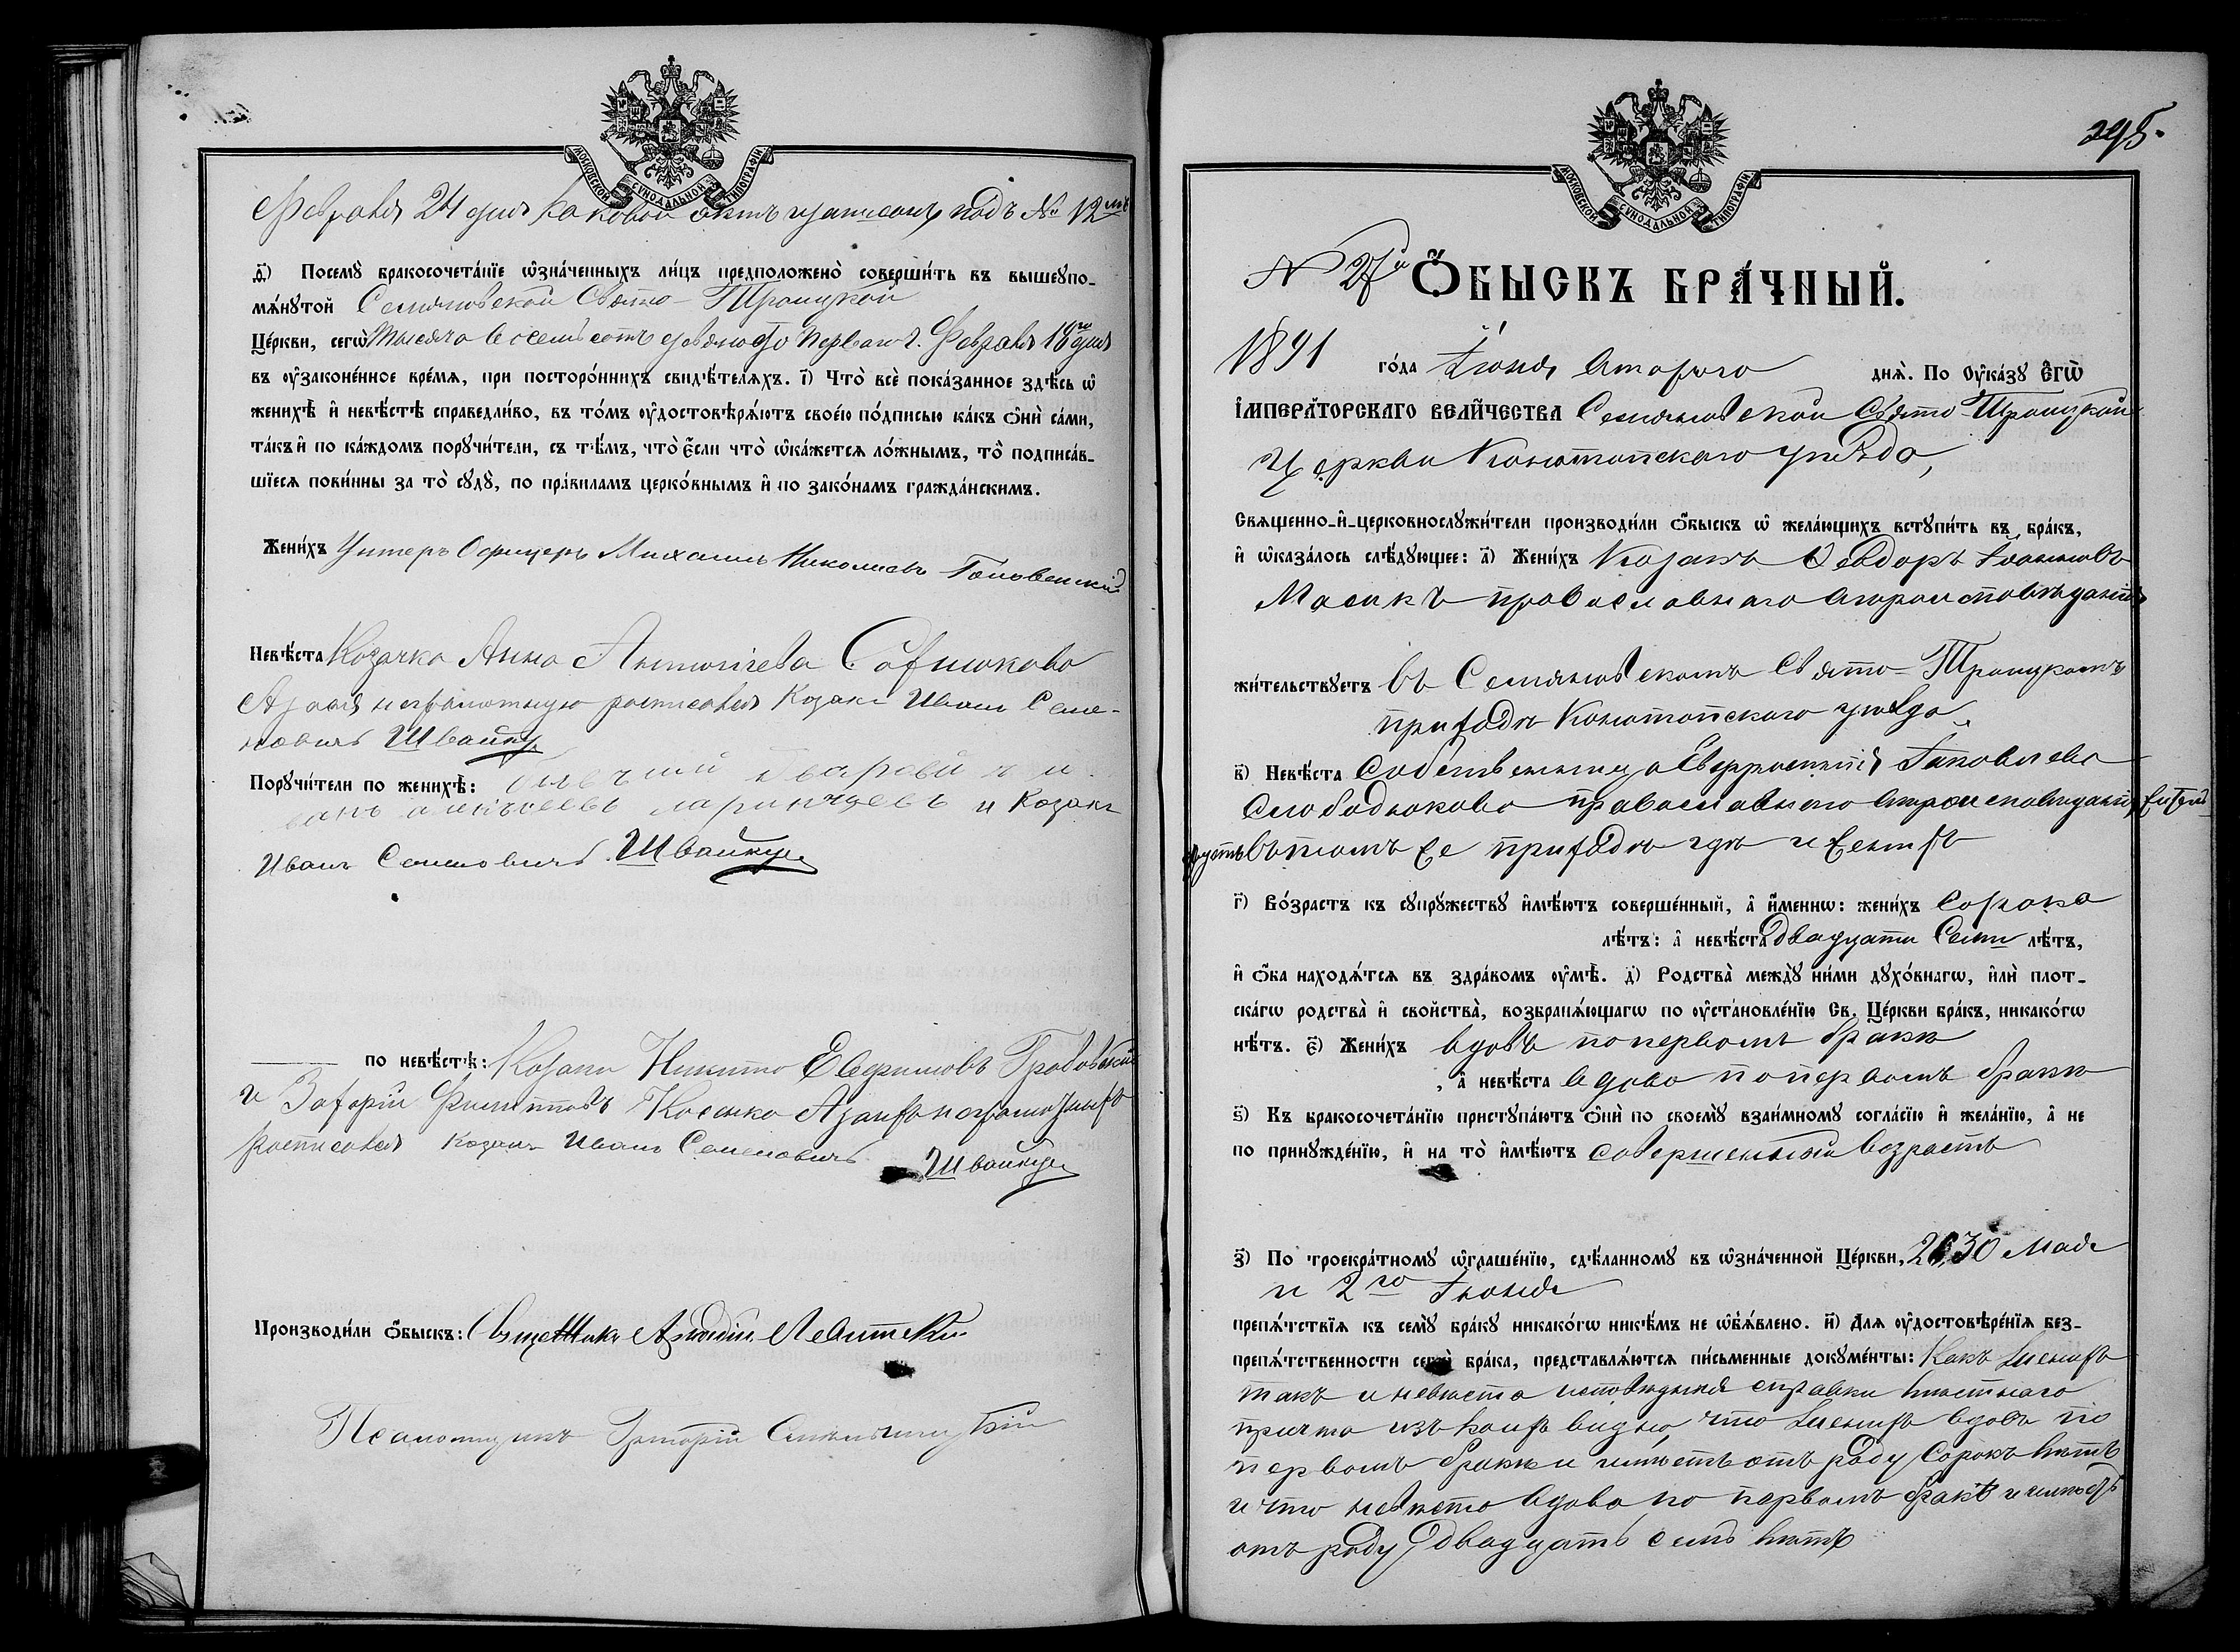 МОСКОВСКОЙ СѴНОДАЛЬНОЙ ТИПОГРАФІИ
Февраля 24 дня каковой актъ записанъ подъ № 12мъ
д҃і) Посемꙋ̀ бракосочета́нїе ѡ҆зна́ченныхъ ли́цъ предположено̀ соверши́ть въ вышеꙋпо-
мѧ́нꙋтой Семяновской Свято-Троицкой
Це́ркви, сегѡ̀ Тысяча восемьсотъ девяносто перваго г. Февраля 18го дня
въ ᲂу҆законе́нное вре́мѧ, при посторо́ннихъ свидѣ́телѧхъ. і҃) Что̀ всѐ пока́занное здѣ́сь ѡ҆
женихѣ̀ и҆ невѣ́стѣ справедли́во, въ то́мъ ᲂу҆достовѣрѧ́ютъ свое́ю по́дписью ка́къ ѻ҆нѝ са́ми,
та́къ и҆ по ка́ждомъ порꙋчи́тели, съ тѣ́мъ, что̀ є҆́сли что̀ ѡ҆ка́жется ло́жнымъ, то̀ подписа́в-
шїесѧ пови́нны за то̀ сꙋдꙋ̀, по пра́виламъ церко́внымъ и҆ по зако́намъ гражда́нскимъ.
Жени́хъ Унтеръ Офицеръ Михаилъ Николаевъ Головенскій
Невѣ́ста Козачка Анна
А за нея неграмотную росписался Козакъ Иванъ Семе-
новичъ Швайку
Порꙋчи́тели по женихѣ̀:
и Козакъ
Иванъ Семеновичъ Швайку
по невѣ́стѣ: Козаки Никита Евфимовъ Грабовскій
и Захарій Филипповъ Косенко А за нихъ неграмотныхъ
росписался козакъ Иванъ Семеновичъ Швайку
Производи́ли ѻ҆́быскъ: Священникъ Левитскій
Псаломщикъ Григорій
МОСКОВСКОЙ СѴНОДАЛЬНОЙ ТИПОГРАФІИ
295.
№ 27й Ѻ҆́БЫСКЪ БРА́ЧНЫЙ.
1891 го́да Іюня второго днѧ̀. По ᲂу҆ка́зꙋ Є҆ГѠ̀
І҆МПЕРА́ТОРСКАГО ВЕЛИ́ЧЕСТВА Семяновской Свято-Троицкой
Церкви Конотопскаго уѣзда,
Свѧщенно-и҆-церковнослꙋжи́тели производи́ли ѻ҆́быскъ ѡ҆ жела́ющихъ встꙋпи́ть въ бра́къ,
и҆ ѡ҆каза́лось слѣ́дꙋющее: а҃) Жени́хъ Козакъ Ѳеодоръ Іоанновъ
Масикъ православнаго вѣроисповѣданія
жи́тельствꙋетъ въ Семяновскомъ Свято-Троицкомъ
приходѣ Конотопскаго уѣзда.
в҃) Невѣ́ста Собственница Евфросинія Іаковлева
Слободнюкова православнаго вѣроисповѣданія, житель-
ствуетъ въ томъ же приходѣ гдѣ и женихъ
г҃) Во́зрастъ къ сꙋпрꙋ́жествꙋ и҆мѣ́ютъ соверше́нный, а҆ и҆́меннѡ: жени́хъ сорока
лѣ́тъ: а҆ невѣ́ста двадцати семи лѣ́тъ,
и҆ ѻ҆́ба находѧ́тсѧ въ здра́вомъ ᲂу҆мѣ̀. д҃) Родства̀ междꙋ̀ ни́ми дꙋхо́внагѡ, и҆лѝ плот-
ска́гѡ родства̀ и҆ свойства̀, возбранѧ́ющагѡ по ᲂу҆становле́нїю Св. Це́ркви бра́къ, никако́гѡ
нѣ́тъ. є҃) Жени́хъ вдовъ по первомъ бракѣ
, а҆ невѣ́ста вдова по первомъ бракѣ
ѕ҃) Къ бракосочета́нїю пристꙋпа́ютъ ѻ҆нѝ по своемꙋ̀ взаи́мномꙋ согла́сїю и҆ жела́нїю, а҆ не
по принꙋжде́нїю, и҆ на то̀ и҆мѣ́ютъ совершенный возрастъ
з҃) По троекра́тномꙋ ѡ҆глаше́нїю, сдѣ́ланномꙋ въ ѡ҆зна́ченной Це́ркви, 26, 30 Мая
и 2го Іюня
препѧ́тствїѧ къ семꙋ̀ бра́кꙋ никако́гѡ никѣ́мъ не ѡ҆б̾ѧ́влено. и҃) Длѧ ᲂу҆достовѣре́нїѧ без-
препѧ́тственности сегѡ̀ бра́ка, представлѧ́ются пи́сьменные докꙋме́нты: Какъ жениха
такъ и невѣста исповѣдныя справки мѣстнаго
причта изъ коихъ видно, что женихъ вдовъ по
первомъ бракѣ и имѣетъ отъ роду сорокъ лѣтъ
и что невѣста вдова по первомъ бракѣ и имѣетъ
отъ роду двадцать семь лѣтъ